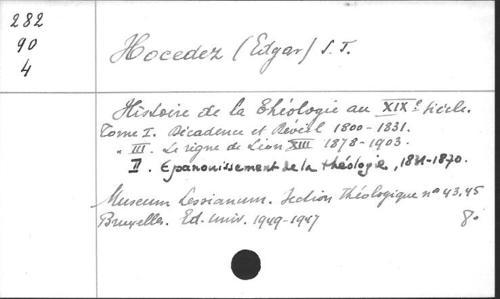 282
90
4
Hocedez (Edgar) S.J.
Histoire de la Théologie au XIXe siècle.
Tome I. Décadence et Réveil 1800-1831.
" III. Le règne de Léon XIII 1878-1903.
II. Epanouissement de la théologie, 1831-1870.
Museum Lessianum. Section Théologique no 43.45
Bruxelles. Ed. Univ. 1949-1947
8o